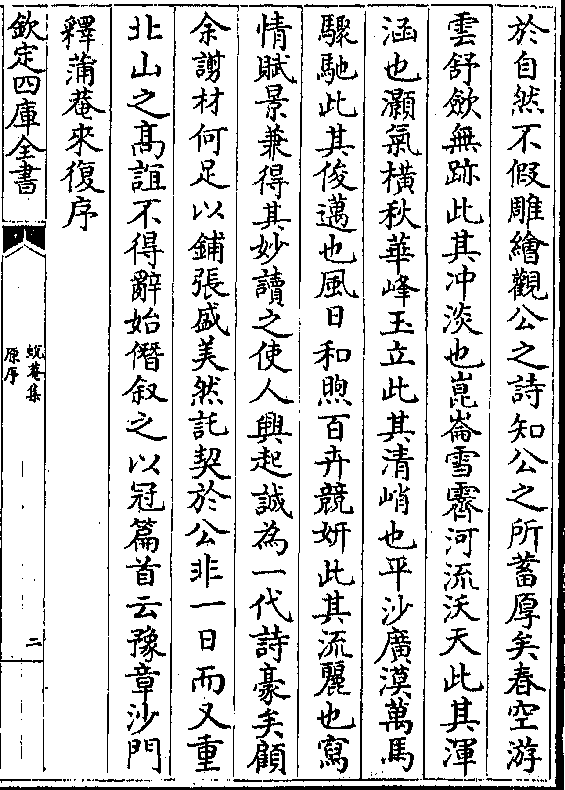 於自然不假雕繪觀公之詩知公之所蓄厚矣春空游
雲舒斂無跡此其冲淡也崑崙雪霽河流沃天此其渾
涵也灝氣橫秋華峰玉立此其清峭也平沙廣漠萬馬
驟馳此其俊邁也風日和煦百卉競妍此其流麗也寫
情賦景兼得其妙讀之使人興起誠為一代詩豪矣顧
余譾材何足以鋪張盛美然託契於公非一日而又重
北山之髙誼不得辭始僭叙之以冠篇首云豫章沙門
釋蒲菴來復序
欽定四庫全書
蛻菴集
原序
二